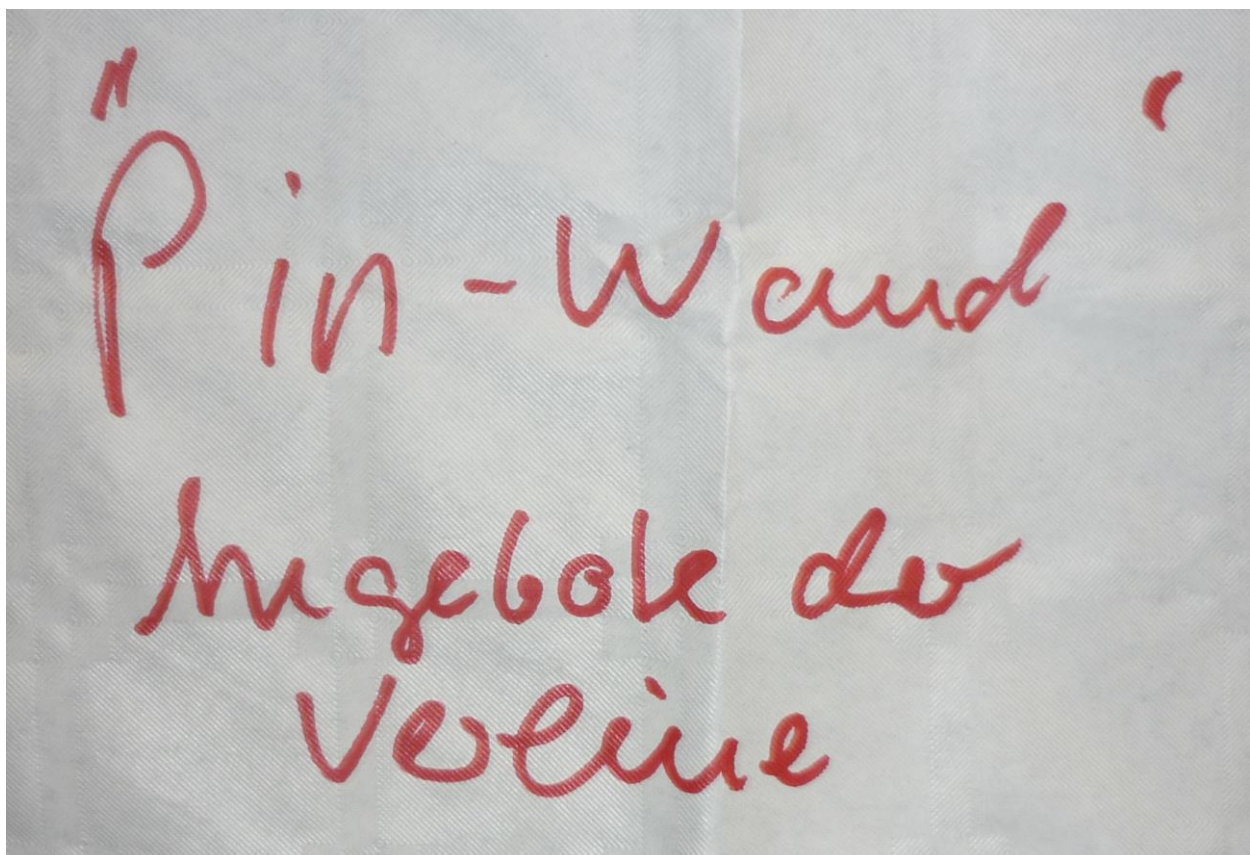 "Pin-Wand'
Angebote der
Vereine